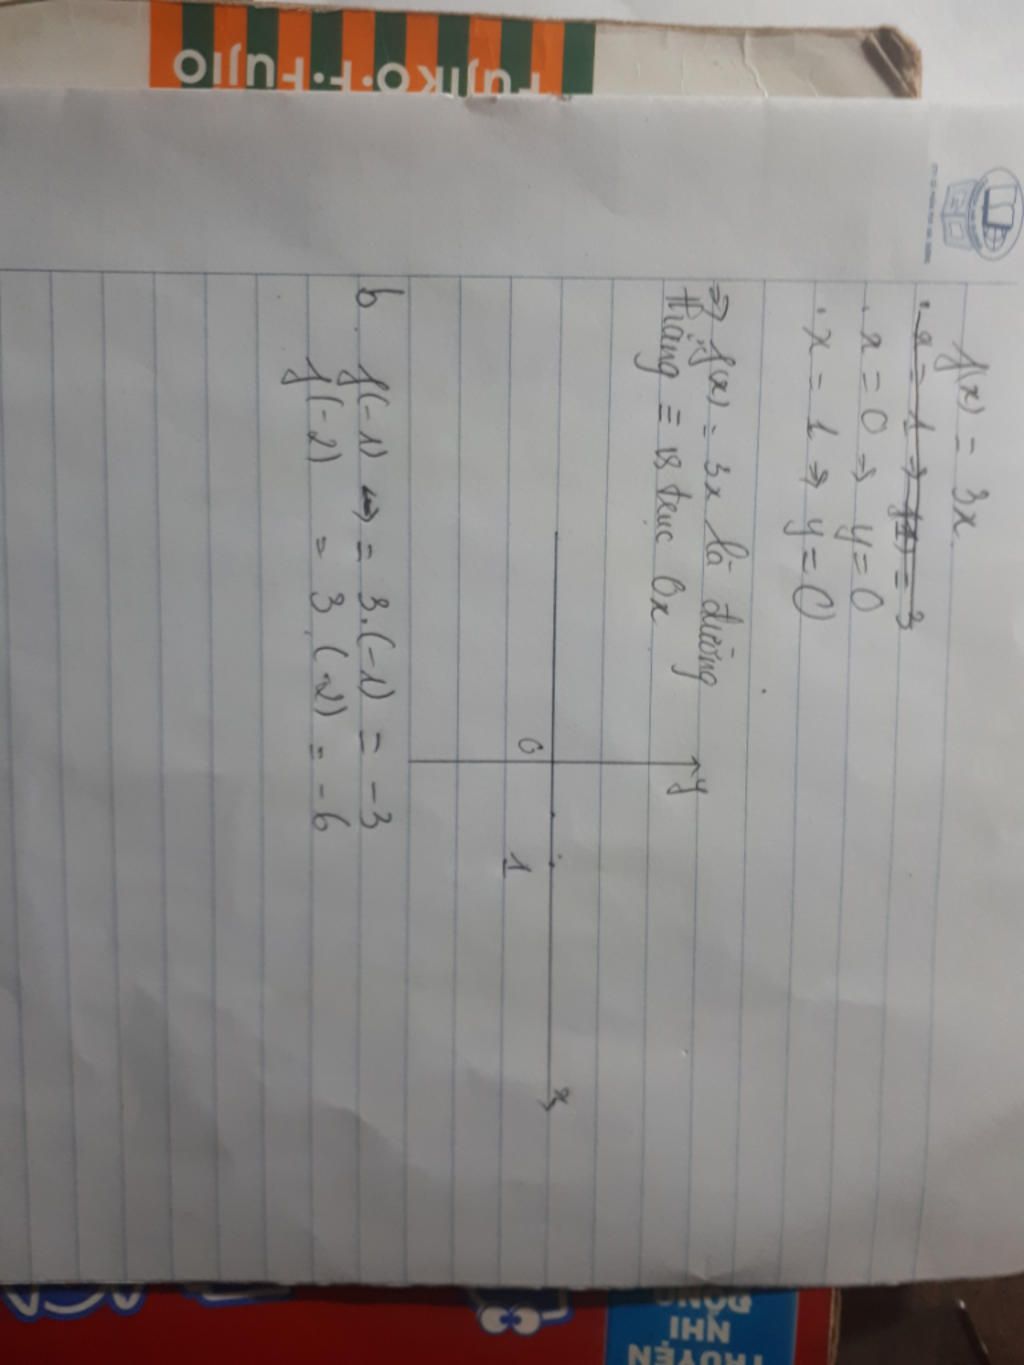 FUJIKO·F·FUJIO
f(x) = 3x
. x = 1 => f(1) = 3
. x = 0 => y = 0
. x = 1 => y = 0
=> f(x) = 3x là đường
thẳng ≡ vs trục Ox
y
0
1
x
b. f(-1) = 3.(-1) = -3
f(-2) = 3.(-2) = -6
TRUYỆN
NHI
ĐỒNG